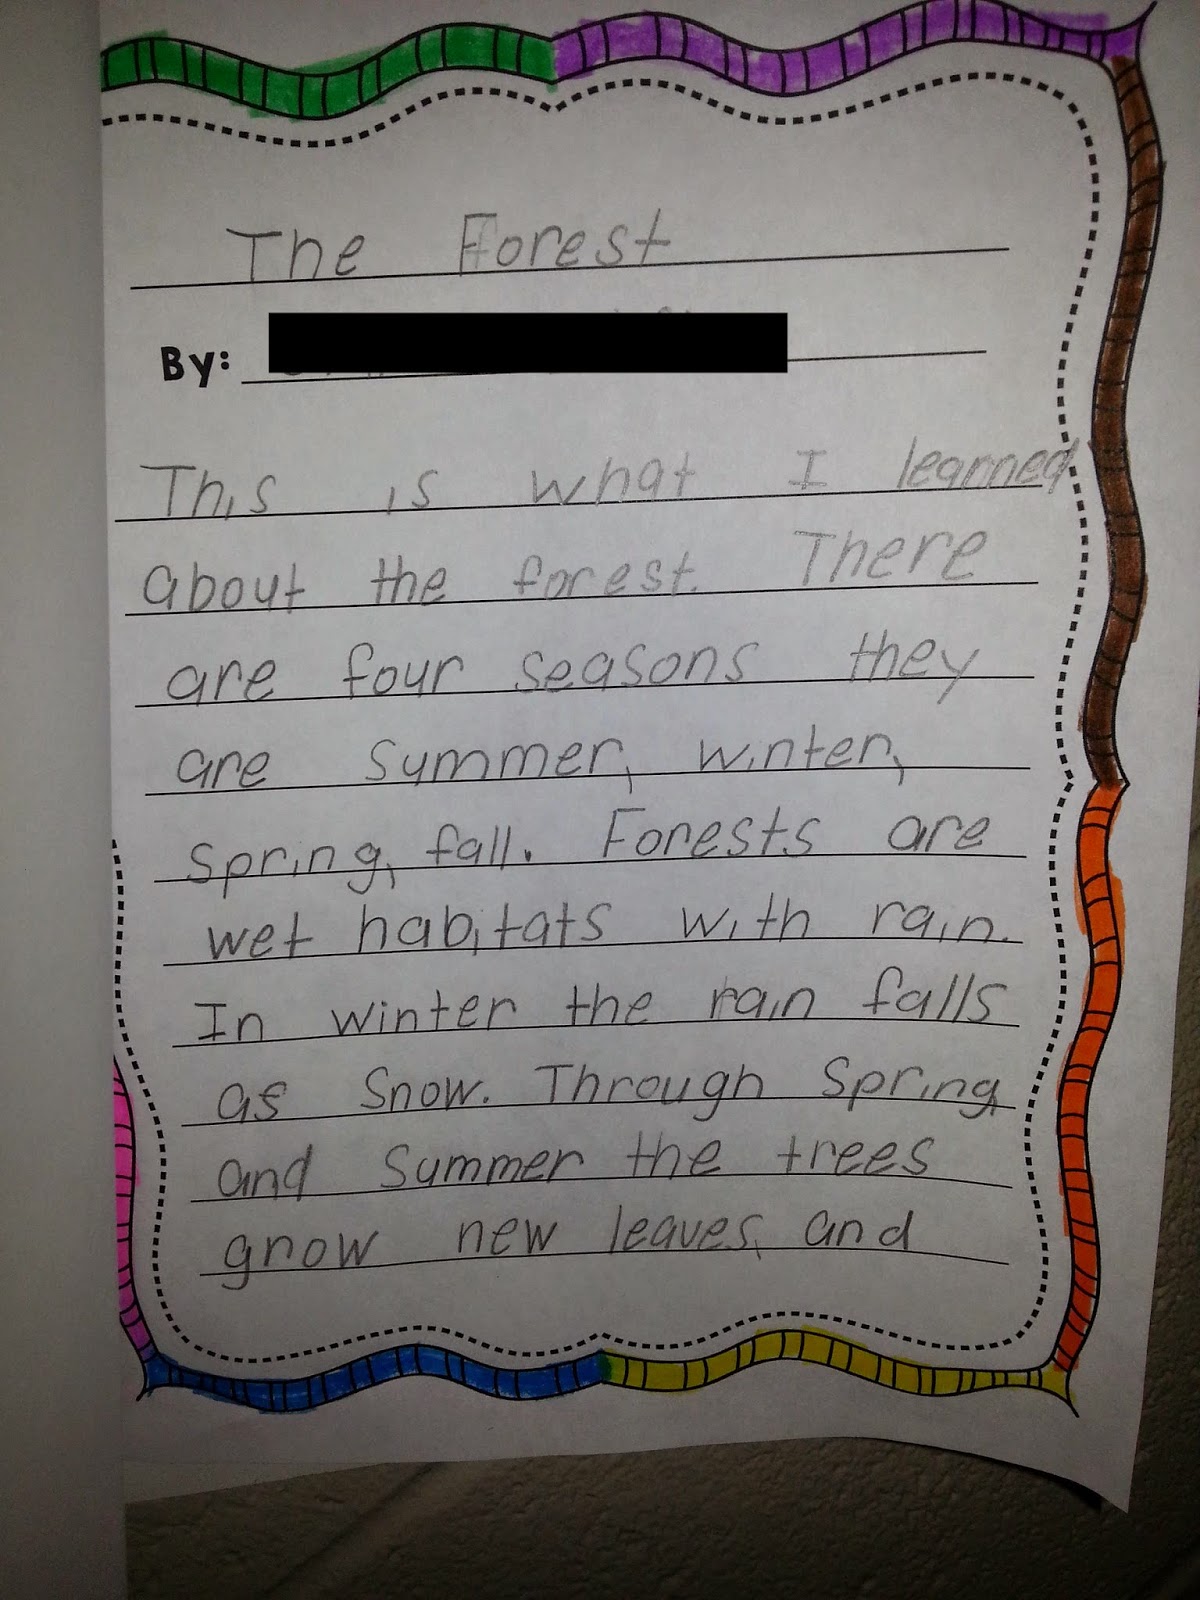 The Forest
By:
This is what I learned
about the forest. There
are four seasons they
are summer, winter,
spring, fall. Forests are
wet habitats with rain.
In winter the rain falls
as snow. Through Spring
and Summer the trees
grow new leaves, and